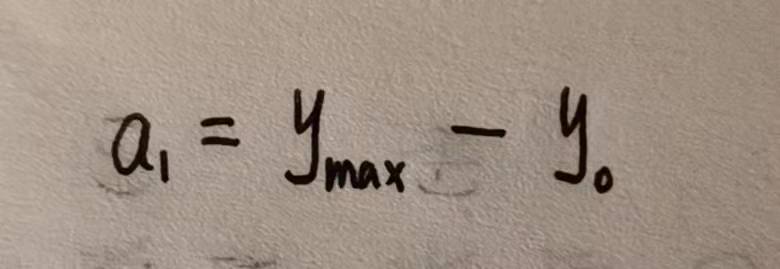 a₁ = y_max − y₀